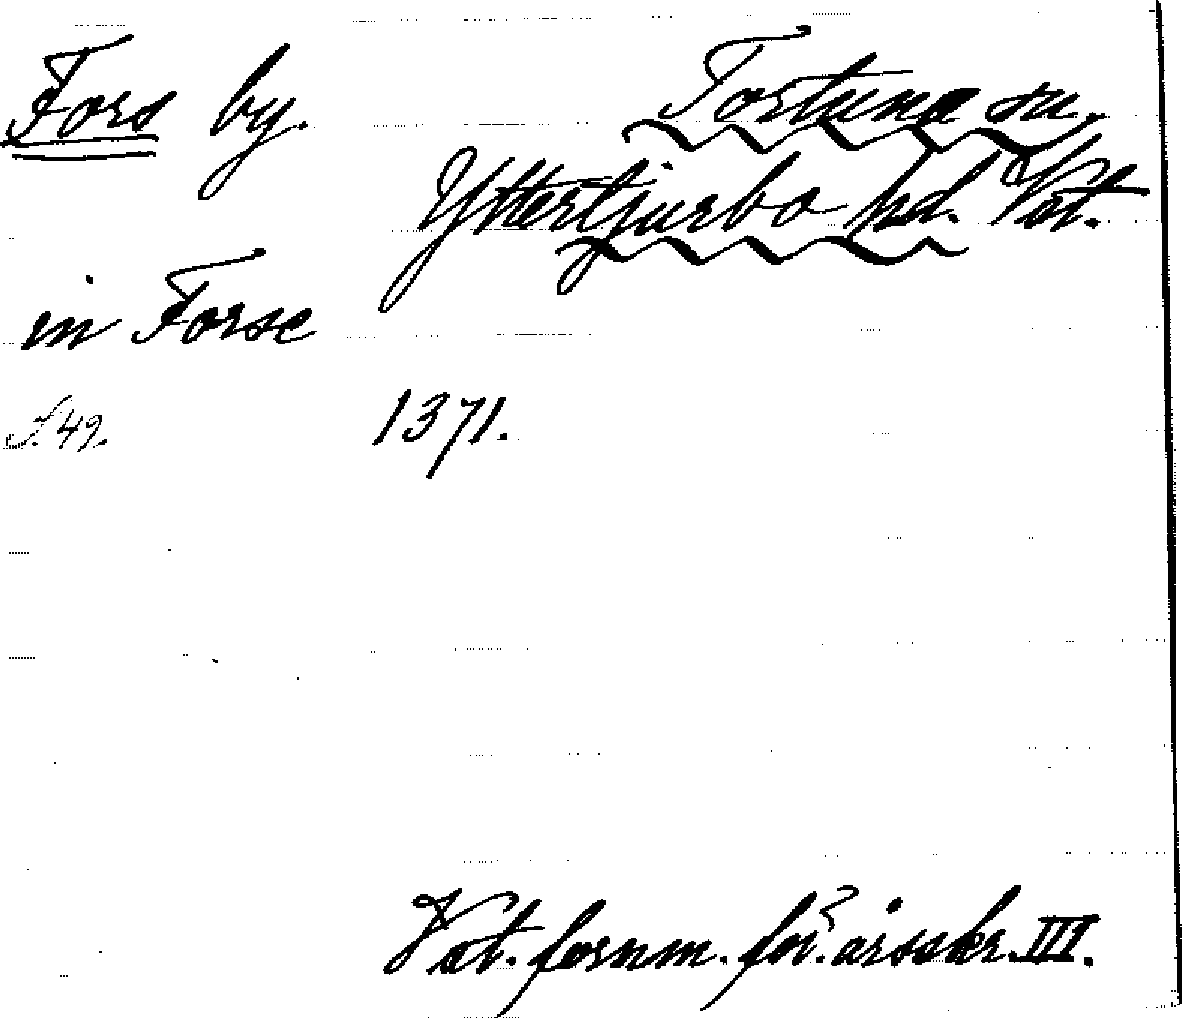 Fors by. Tortuna sn.
Yttertjurbo hd. Vst.
in Forse
S. 49. 1371.
Vst. fornm. för:s årsskr. III.